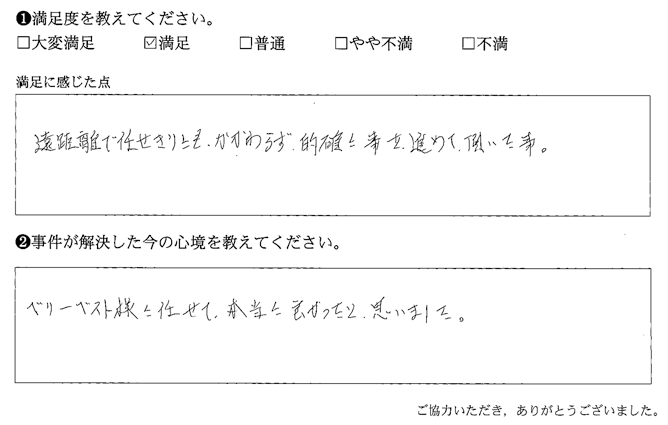 ❶満足度を教えてください。
□大変満足 ☑満足 □普通 □やや不満 □不満
満足に感じた点
遠距離で任せきりにも、かかわらず、的確に事を、進めて、頂いた事。
❷事件が解決した今の心境を教えてください。
ベリーベスト様に任せて、本当に良かったと、思いました。
ご協力いただき，ありがとうございました。